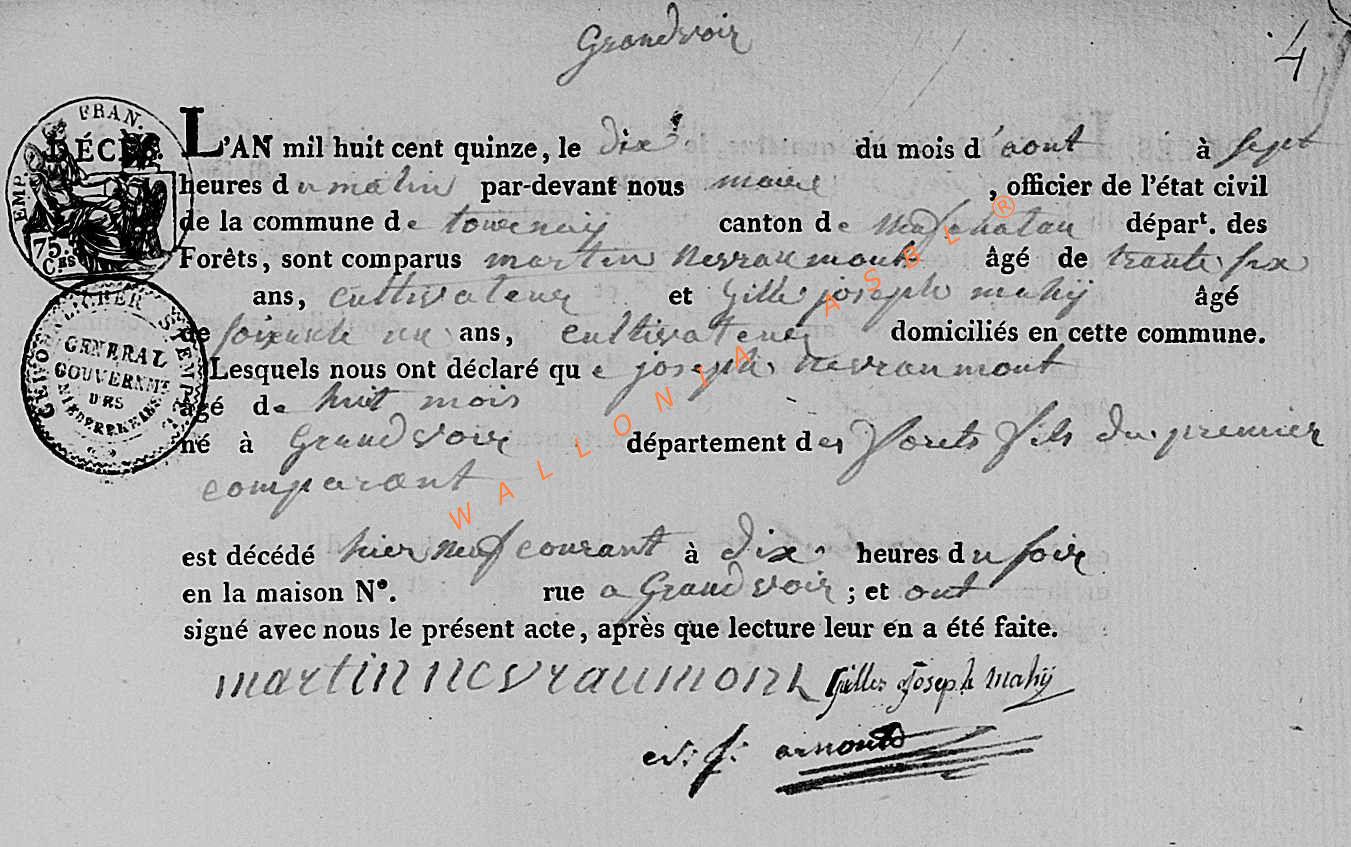 Grandvoir
4
DÉCÈS.
EMP. FRAN.
75. Cms
L'AN mil huit cent quinze, le dix du mois d'aout à sept
heures du matin par-devant nous maire , officier de l'état civil
de la commune de tournay canton de neufchatau départ. des
Forêts, sont comparus martin nevraumont âgé de trante six
ans, cultivateur et Gille joseph mahij âgé
de soixente un ans, cultivateur domiciliés en cette commune.
Lesquels nous ont déclaré que joseph nevraumont
âgé de huit mois
né à Grandvoir département des forets fils du premier
comparant
est décédé hier neuf courant à dix heures du soir
en la maison N°. rue a Grandvoir ; et ont
signé avec nous le présent acte, après que lecture leur en a été faite.
martin nevraumont Gilles Joseph mahij
arnould
GENERAL
GOUVERNMT
DES
NIEDERRHEINS
STEMPEL
WALLONIA ASBL ®